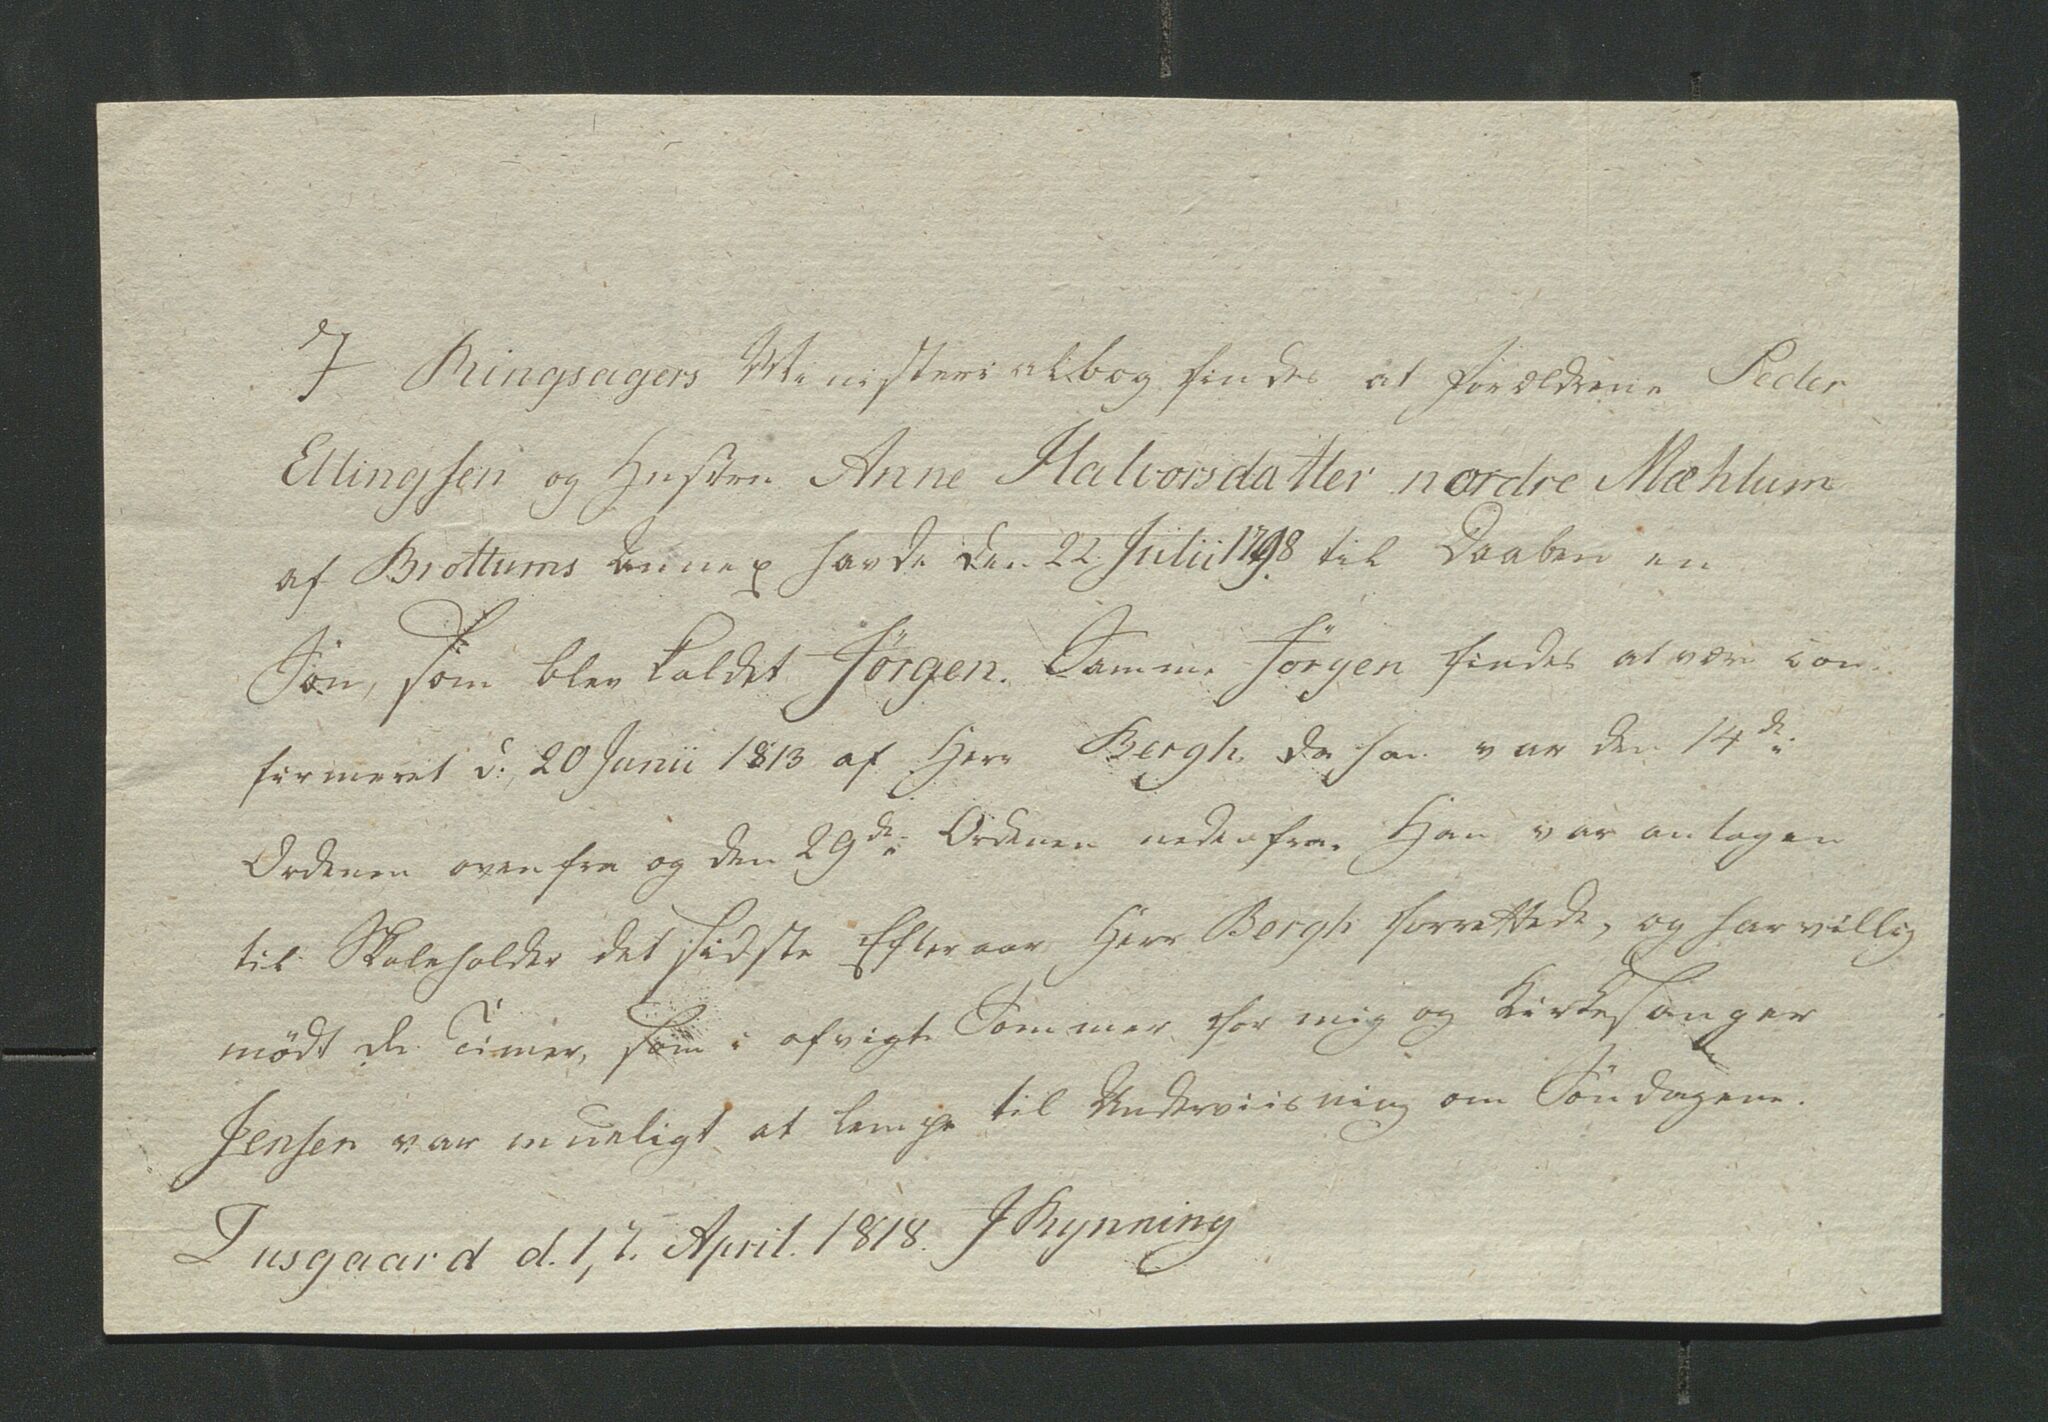 I Ringsagers Ministerialbog findes at Forældrene Peder
Ellingsen og Hustru Anne Halvorsdatter nordre Mæhlum
af Brøttums Annex havde den 22 Julii 1798 til Daaben en
Søn, som blev kaldet Jörgen. Samme Jörgen findes at være con-
firmeret d: 20 Junii 1813 af Herr Bergh, da han var den 14de
Ordenen ovenfra og den 29de Ordenen nedenfra. Han var antagen
til Skoleholder det sidste Efteraar Herr Bergh forrettede, og har villig
mødt de Timer, som i afvigte Sommer for mig og Kirkesanger
Jensen var mueligt at lempe til Underviisning om Söndagene.
Tusgaard d. 17. April. 1818. J Rynning